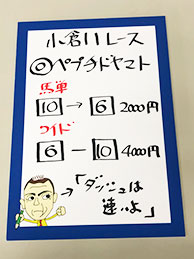 小倉11レース
◎ペプチドヤマト
馬単
10→6 2000円
ワイド
6－10 4000円
→「ダッシュは
速いよ」